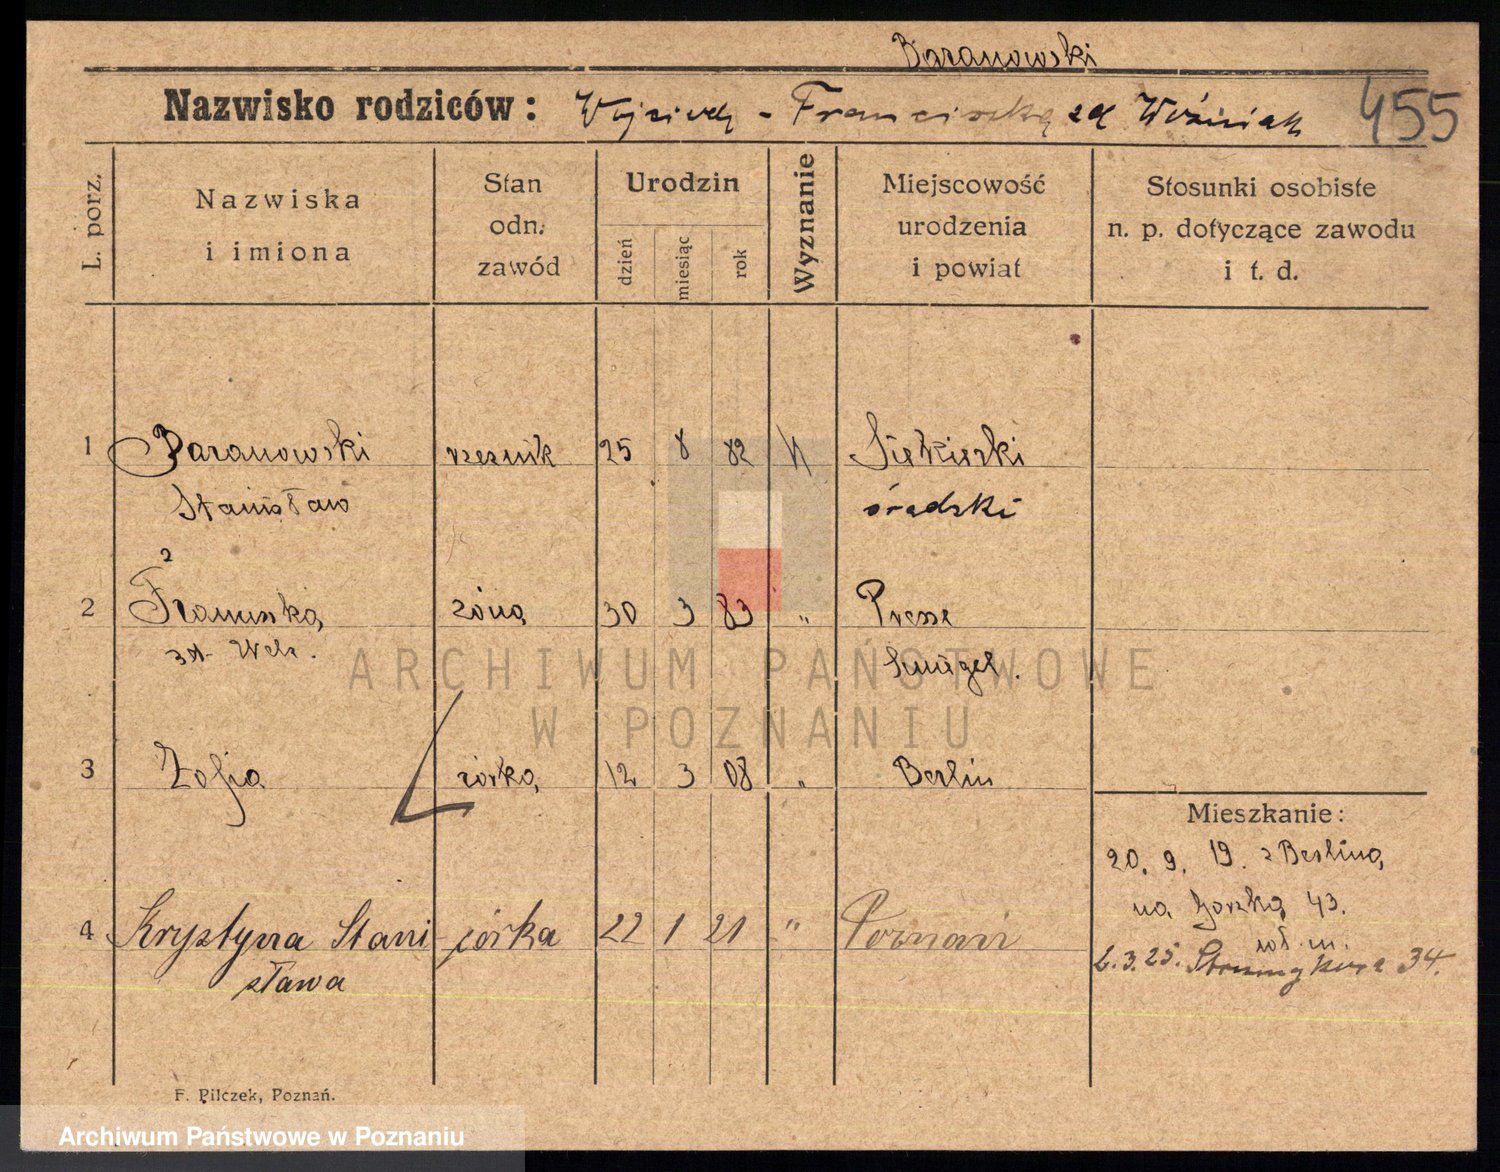 Baranowski
Nazwisko rodziców: Wojciech - Franciszka zd Woźniak
455
L. porz.
Nazwiska
i imiona
Stan
odn.
zawód
Urodzin
dzień
miesiąc
rok
Wyznanie
Miejscowość
urodzenia
i powiat
Stosunki osobiste
n. p. dotyczące zawodu
i t. d.
1 Baranowski rzeźnik 25 8 82 Siekierki
Stanisław średzki
2
2 Franciszka żona 30 3 83 "
Śmigel.
3 Zofja córka 12 3 08 " Berlin
Mieszkanie:
20. 9. 19. z Berlina
na 43.
4 Krystyna Stani córka 22 1 21 " Poznań
sława
2.3.25. 34.
F. Pilczek, Poznań.
ARCHIWUM PAŃSTWOWE
W POZNANIU
Archiwum Państwowe w Poznaniu